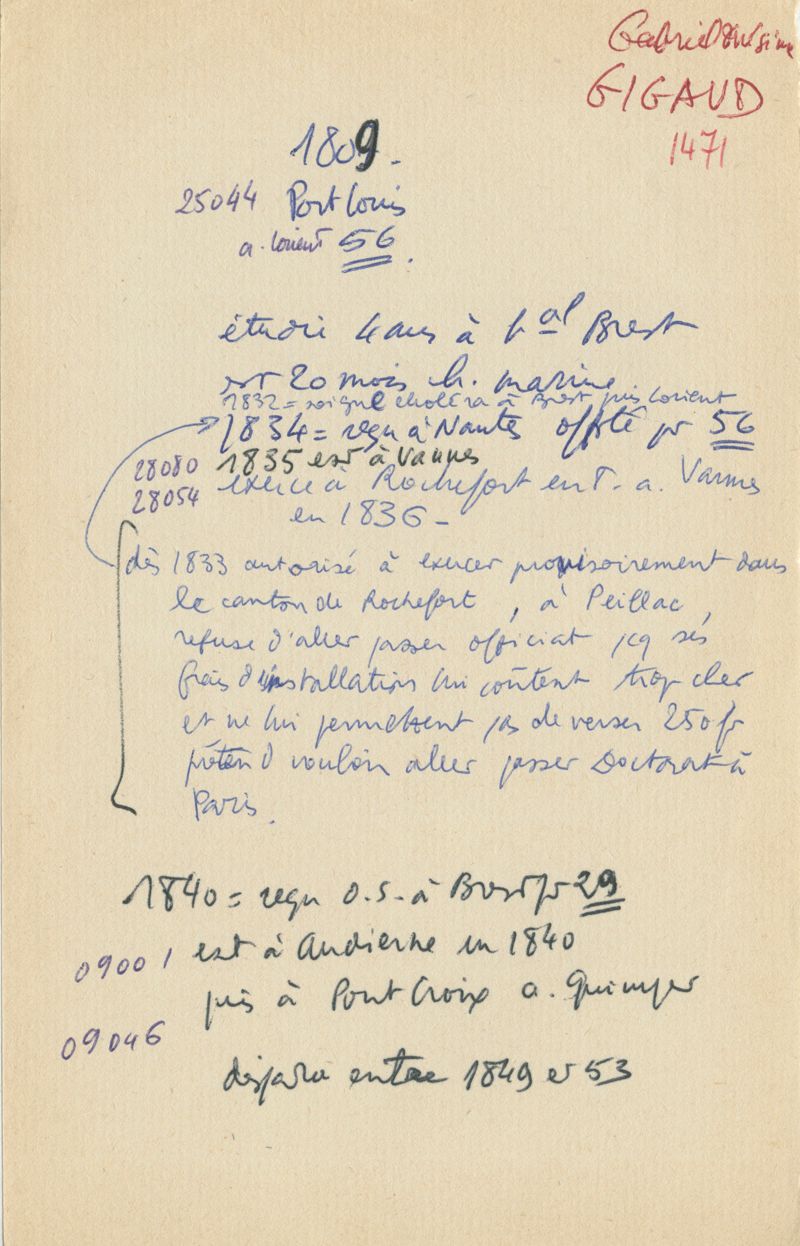 Gabriel
GIGAUD
1471
1809.
25044 Port Louis
a. Lorient 56.
étudie 4 ans à hal Brest
est 20 mois ch. marine
1832 = soigne choléra à Brest puis Lorient
1834 = reçu à Nantes offté pr 56
28080 1835 est à Vannes
28054 exerce à Rochefort en T. a. Vannes
en 1836 -
dès 1833 autorisé à exercer provisoirement dans
le canton de Rochefort, à Peillac,
refuse d'aller passer officiat pcq ses
frais d'installation lui coûtent trop cher
et ne lui permettent pas de verser 250 fr
prétend vouloir aller passer Doctorat à
Paris.
1840 = reçu O.S. à Brest pr 29
09001 est à Audierne en 1840
puis à Pont Croix a. Quimper
09046
disparu entre 1849 et 53